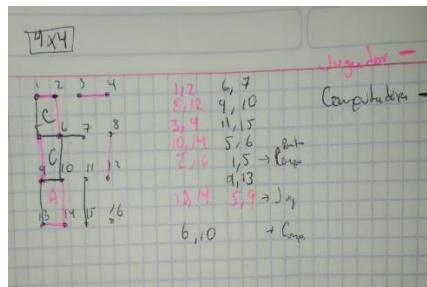 4x4
Jugador -
Computadora -
1 2 3 4
C
6 7 8
C
9 10 11 12
A
13 14 15 16
1,2 6,7
8,12 9,10
3,4 11,15
10,14 5,6
2,6 1,5 →
9,13
13,14 5,9 →
6,10 →